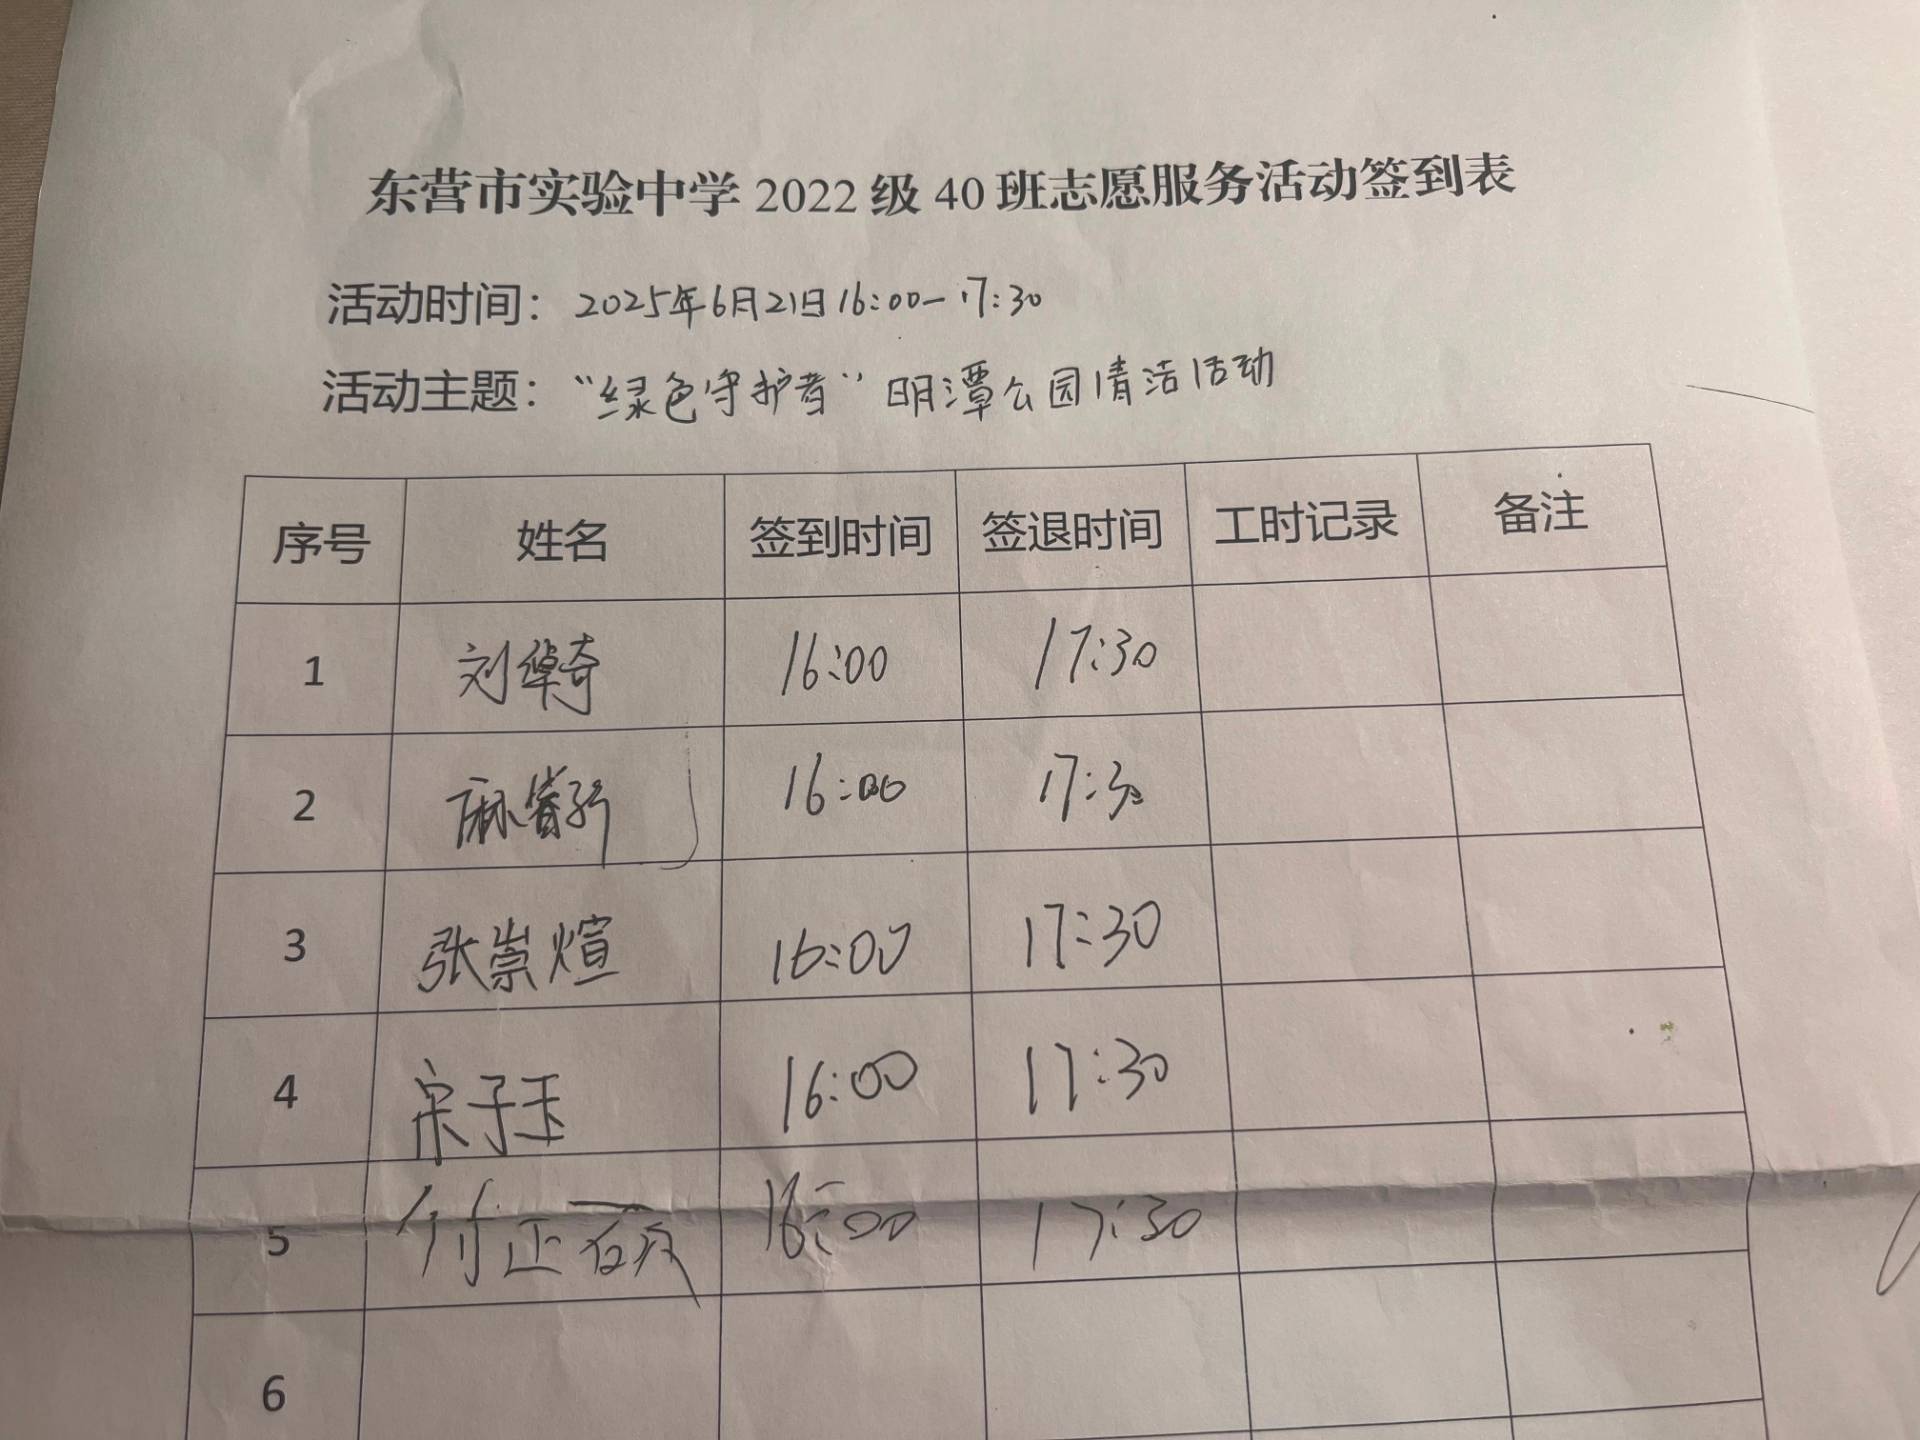 东营市实验中学 2022 级 40 班志愿服务活动签到表
活动时间：2025年6月21日16:00—17:30
活动主题：“绿色守护者”明潭公园清洁活动
序号 姓名 签到时间 签退时间 工时记录 备注
1 刘绰奇 16:00 17:30
2 麻 16:00 17:30
3 张崇煊 16:00 17:30
4 宋子玉 16:00 17:30
5 付正硕 16:00 17:30
6